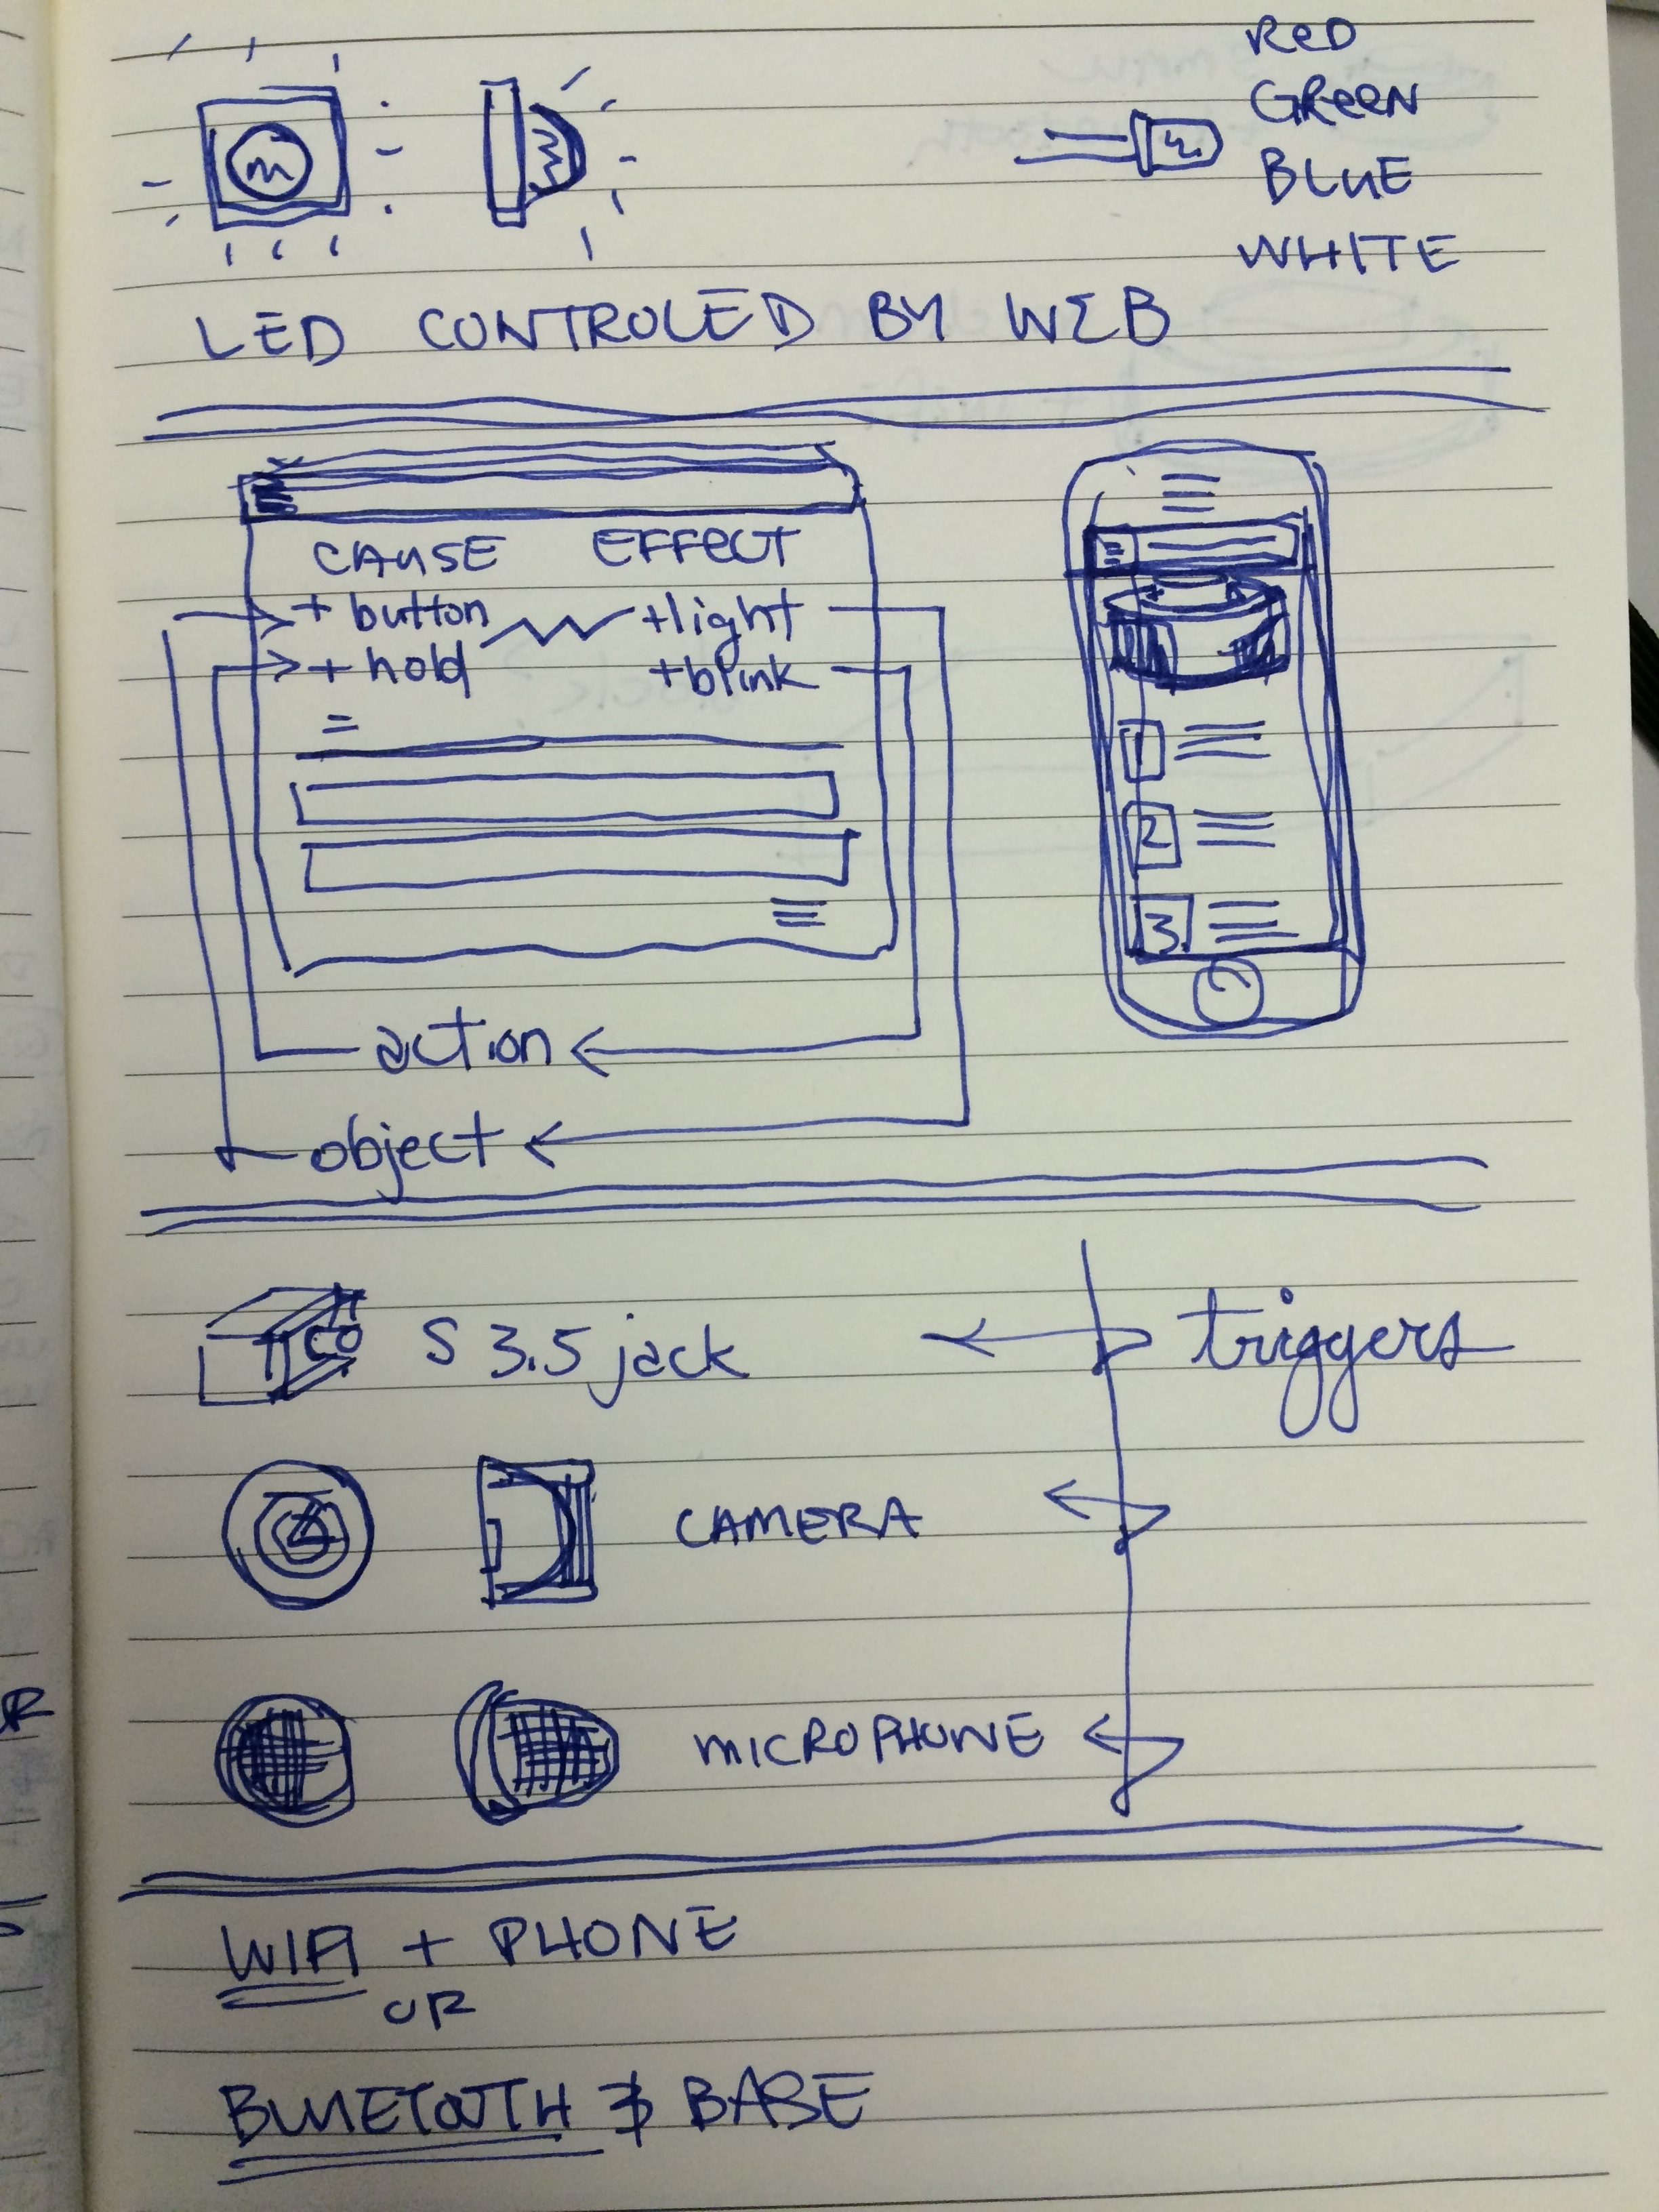 RED
GREEN
BLUE
WHITE
LED CONTROLED BY WEB
CAUSE EFFECT
+ button +light
+ hold +blink
1
2
3
action
object
S 3.5 jack
triggers
CAMERA
MICROPHONE
WIFI + PHONE
OR
BLUETOOTH & BASE